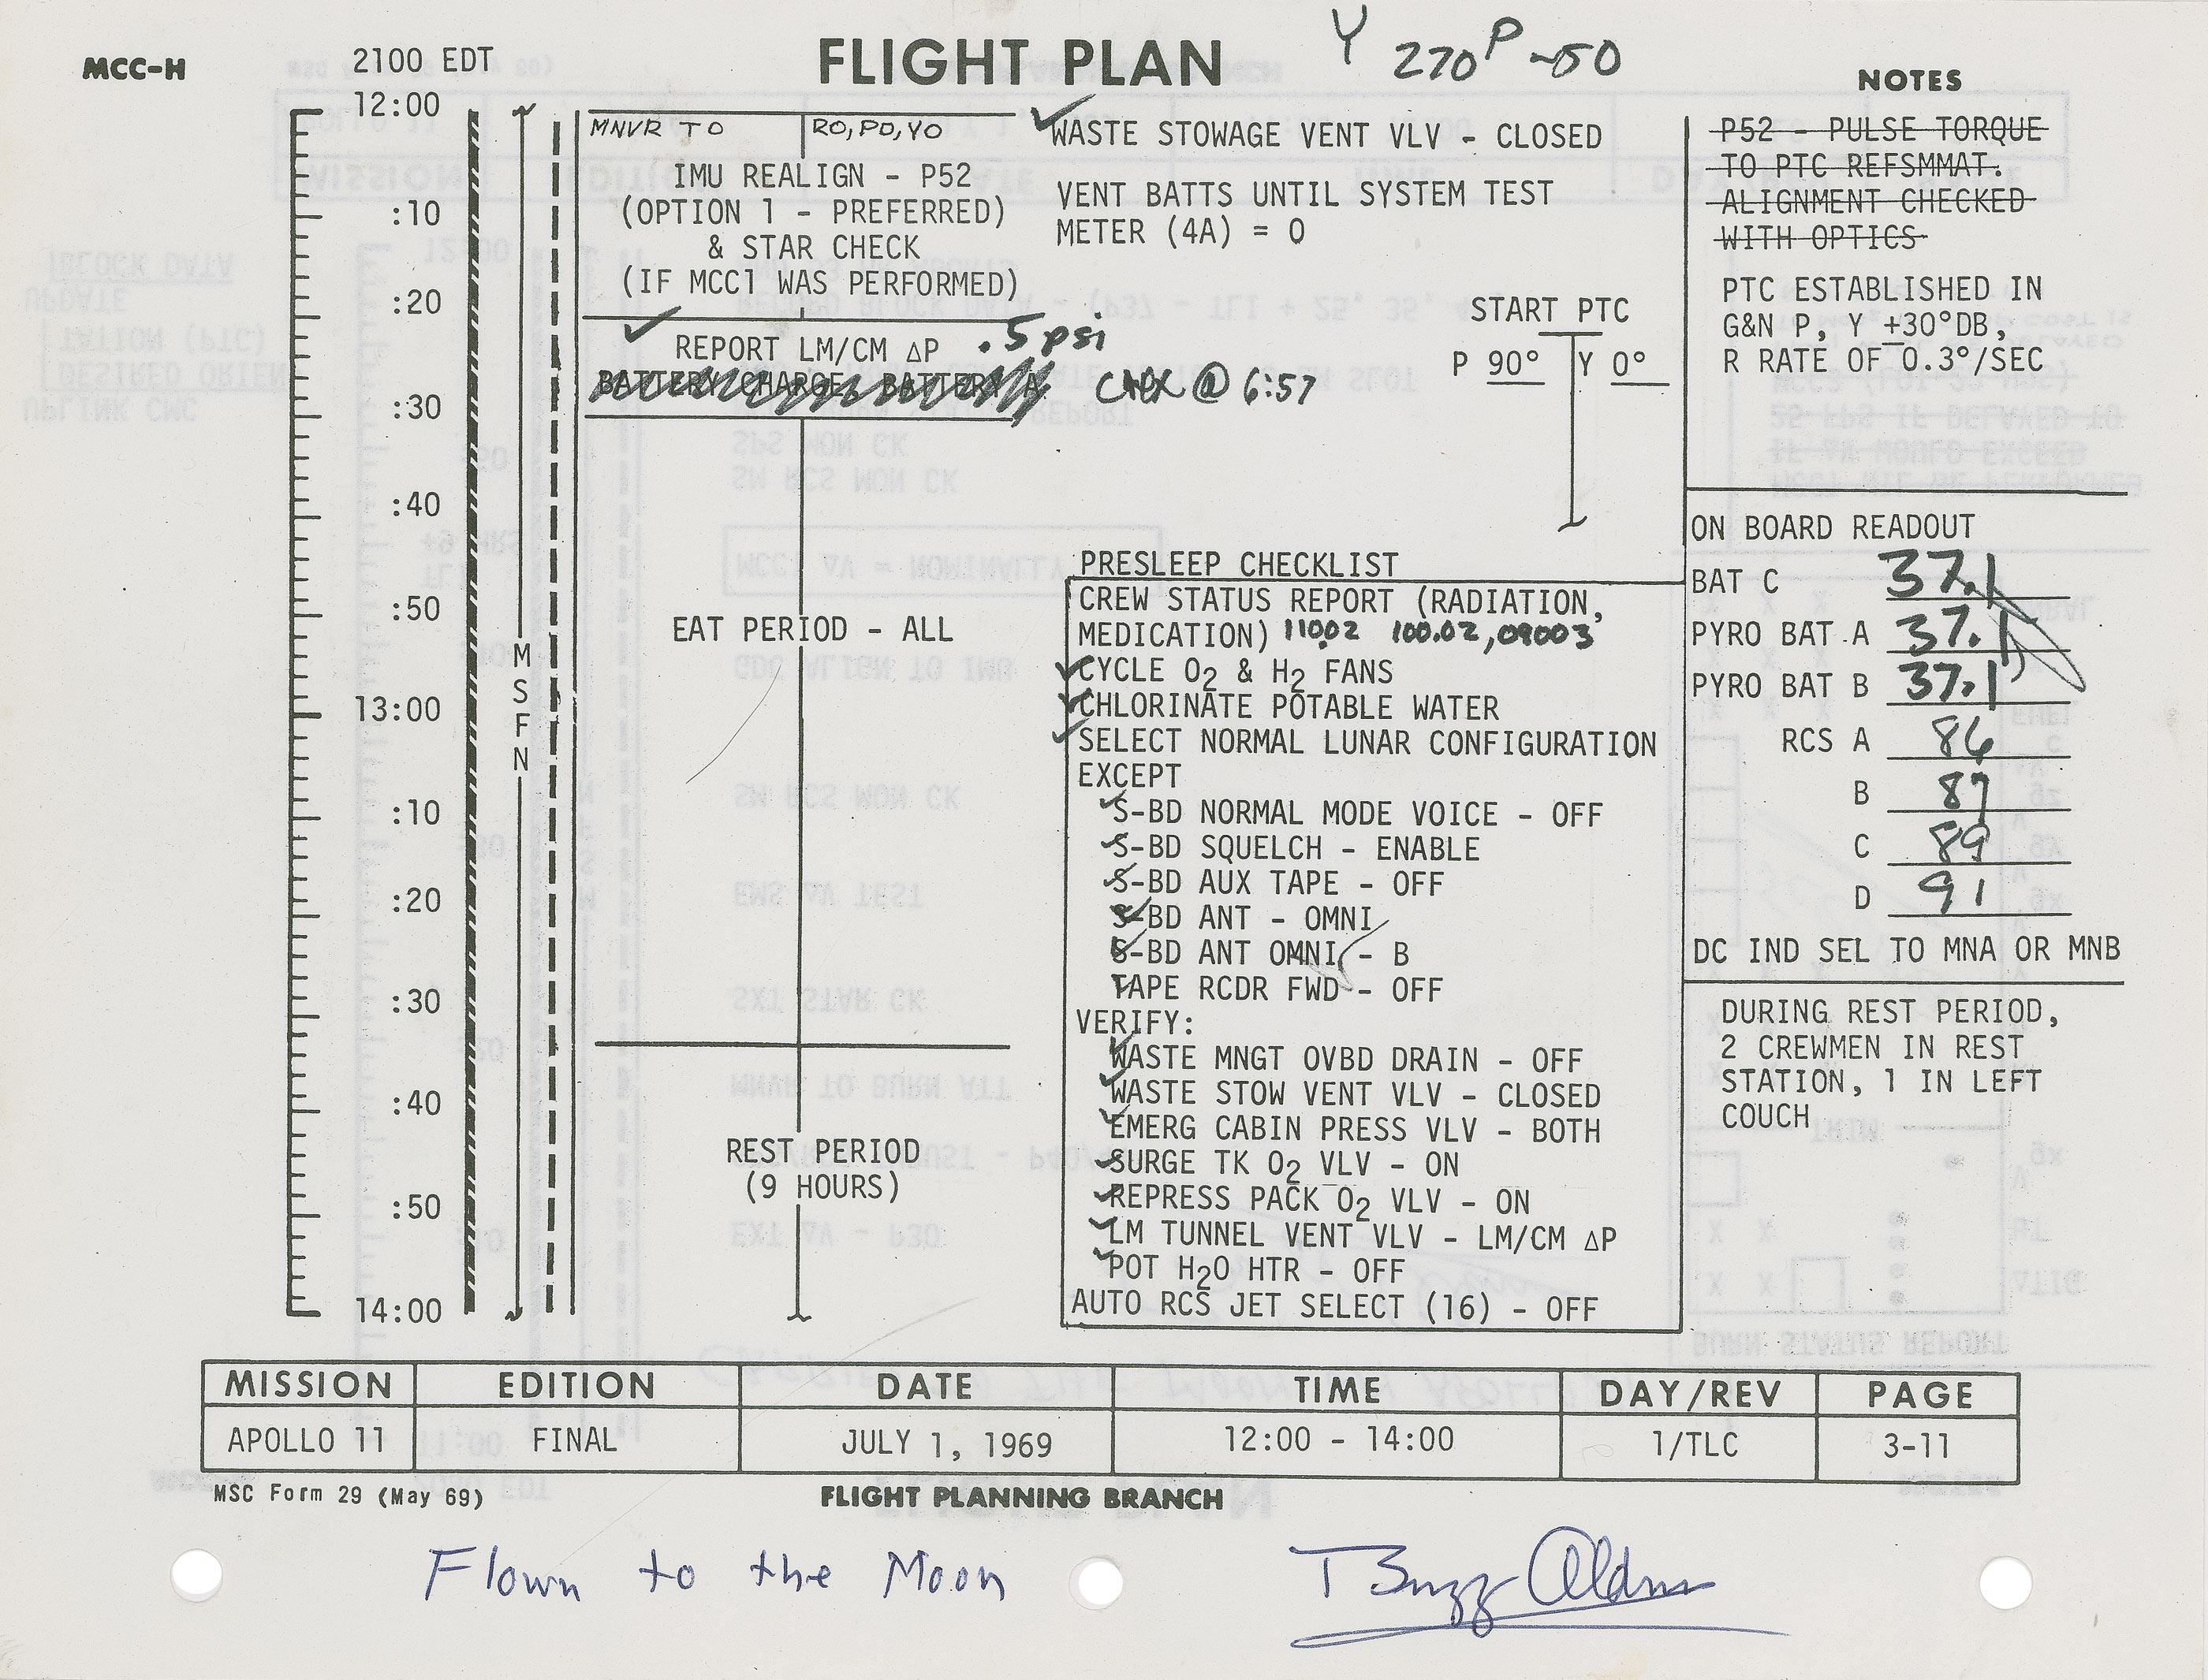 MCC-H
2100 EDT
FLIGHT PLAN
Y 270 P -50
NOTES
12:00
:10
:20
:30
:40
:50
13:00
:10
:20
:30
:40
:50
14:00
MSFN
MNVR TO
R0, P0, Y0
IMU REALIGN - P52
(OPTION 1 - PREFERRED)
& STAR CHECK
(IF MCC1 WAS PERFORMED)
REPORT LM/CM ΔP .5 psi
BATTERY CHARGE, BATTERY A
@ 6:57
EAT PERIOD - ALL
REST PERIOD
(9 HOURS)
WASTE STOWAGE VENT VLV - CLOSED
VENT BATTS UNTIL SYSTEM TEST
METER (4A) = 0
START PTC
P 90° Y 0°
PRESLEEP CHECKLIST
CREW STATUS REPORT (RADIATION,
MEDICATION) 11002 100.02, 09003
CYCLE O2 & H2 FANS
CHLORINATE POTABLE WATER
SELECT NORMAL LUNAR CONFIGURATION
EXCEPT
S-BD NORMAL MODE VOICE - OFF
S-BD SQUELCH - ENABLE
S-BD AUX TAPE - OFF
S-BD ANT - OMNI
S-BD ANT OMNI - B
TAPE RCDR FWD - OFF
VERIFY:
WASTE MNGT OVBD DRAIN - OFF
WASTE STOW VENT VLV - CLOSED
EMERG CABIN PRESS VLV - BOTH
SURGE TK O2 VLV - ON
REPRESS PACK O2 VLV - ON
LM TUNNEL VENT VLV - LM/CM ΔP
POT H2O HTR - OFF
AUTO RCS JET SELECT (16) - OFF
P52 - PULSE TORQUE
TO PTC REFSMMAT.
ALIGNMENT CHECKED
WITH OPTICS
PTC ESTABLISHED IN
G&N P, Y ±30°DB,
R RATE OF 0.3°/SEC
ON BOARD READOUT
BAT C 37.1
PYRO BAT A 37.1
PYRO BAT B 37.1
RCS A 86
B 87
C 89
D 91
DC IND SEL TO MNA OR MNB
DURING REST PERIOD,
2 CREWMEN IN REST
STATION, 1 IN LEFT
COUCH
MISSION EDITION DATE TIME DAY/REV PAGE
APOLLO 11 FINAL JULY 1, 1969 12:00 - 14:00 1/TLC 3-11
MSC Form 29 (May 69)
FLIGHT PLANNING BRANCH
Flown to the Moon
Buzz Aldrin